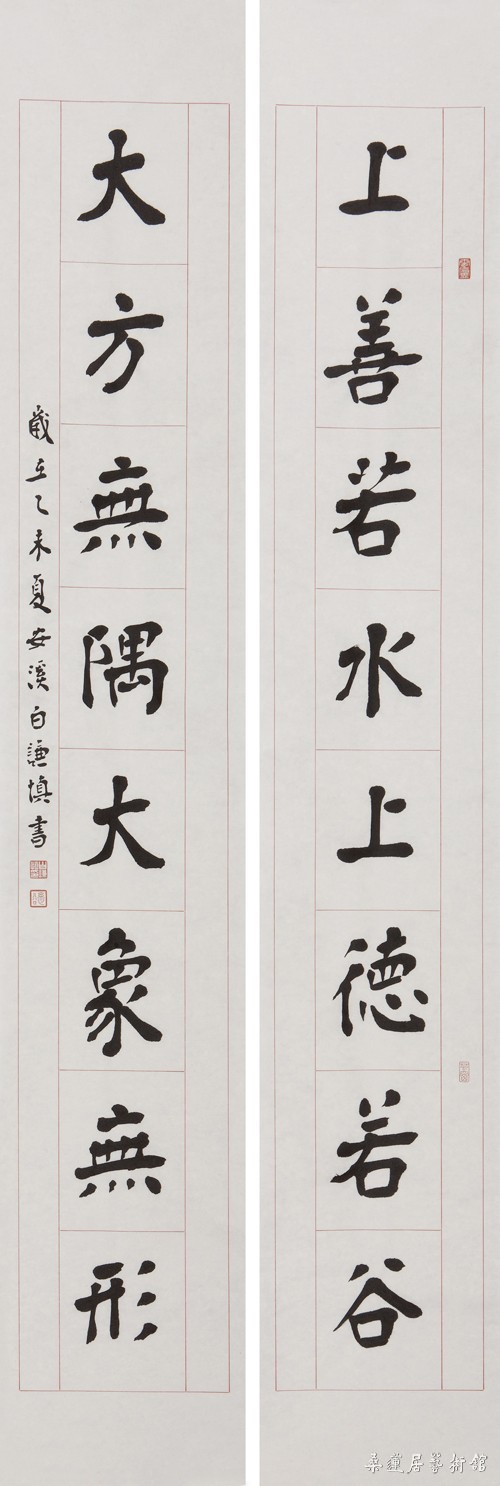 上善若水上德若谷
大方無隅大象無形
歲在乙未夏安溪白謙慎書
桑蓮居藝術館